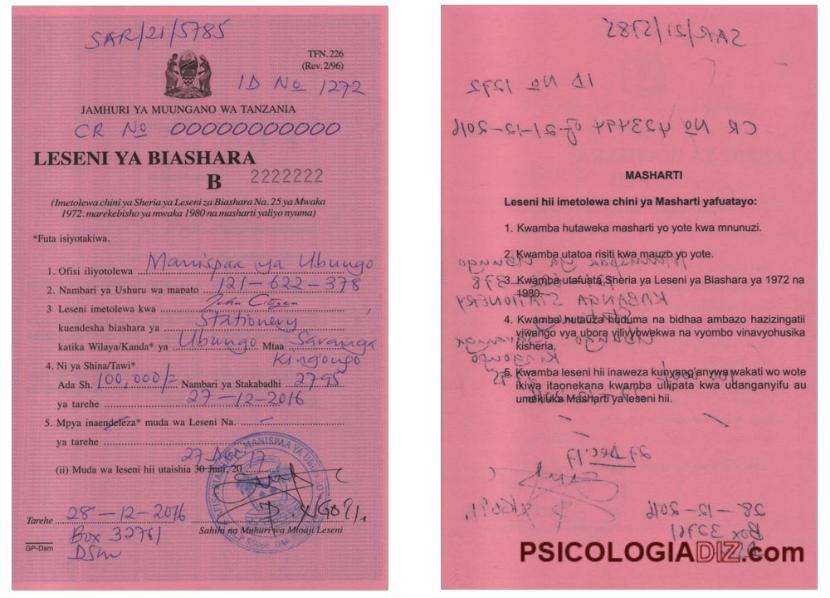 SAR/21/5785
TFN. 226
(Rev. 2/96)
ID No 1272
JAMHURI YA MUUNGANO WA TANZANIA
CR No 00000000000
LESENI YA BIASHARA
B 2222222
(Imetolewa chini ya Sheria ya Leseni za Biashara Na. 25 ya Mwaka
1972. marekebisho ya mwaka 1980 na masharti yaliyo nyuma)
*Futa isiyotakiwa.
1. Ofisi iliyotolewa Manispaa ya Ubungo
2. Nambari ya Ushuru wa mapato 121-622-378
3 Leseni imetolewa kwa
kuendesha biashara ya Stationery
katika Wilaya/Kanda* ya Ubungo Mtaa Saranga
Kingongo
4. Ni ya Shina/Tawi*
Ada Sh. 100,000/= Nambari ya Stakabadhi 2795
ya tarehe 27-12-2016
5. Mpya inaendeleza* muda wa Leseni Na.
ya tarehe
27 Dec 17
(ii) Muda wa leseni hii utaishia 30 Juni, 20
MANISPAA YA
Tarehe 28-12-2016
Sahihi na Muhuri wa Mtoaji Leseni
Box 32761
Dsm
GP-Dsm
SAR/21/5785
ID No 1272
CR No 423494 of 21-12-2016
MASHARTI
Leseni hii imetolewa chini ya Masharti yafuatayo:
1. Kwamba hutaweka masharti yo yote kwa mnunuzi.
2. Kwamba utatoa risiti kwa mauzo yo yote.
3. Kwamba utafuata Sheria ya Leseni ya Biashara ya 1972 na
1980.
4. Kwamba hutauza huduma na bidhaa ambazo hazizingatii
viwango vya ubora vilivyowekwa na vyombo vinavyohusika
kisheria.
5. Kwamba leseni hii inaweza kunyang'anywa wakati wo wote
ikiwa itaonekana kwamba ulipata kwa udanganyifu au
umekiuka Masharti ya leseni hii.
27 Dec 17
28-12-2016
Box 32761
PSICOLOGIADIZ.com